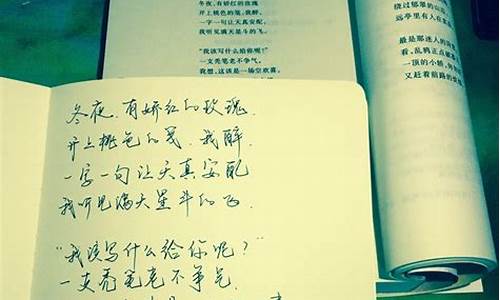 冬夜,有娇红的玫瑰
开上桃色的笺,我醉,
一字一句让天真安配,
我听见满天星斗的飞。
“我该写什么给你呢?”
一支秃笔老不争气。
我想,这该是一场空欢喜。
绕过郁翠的山
远亭里有人在
最是那迷人的
看,乱鸦正点破
一顶的小轿,
又赶着前路的
冬夜,有娇红的玫瑰
开上桃色的笺,我醉,
一字一句让天真安配
我听见满天星斗的飞.
“我该写什么给你呢?”
一支秃笔老不争气.